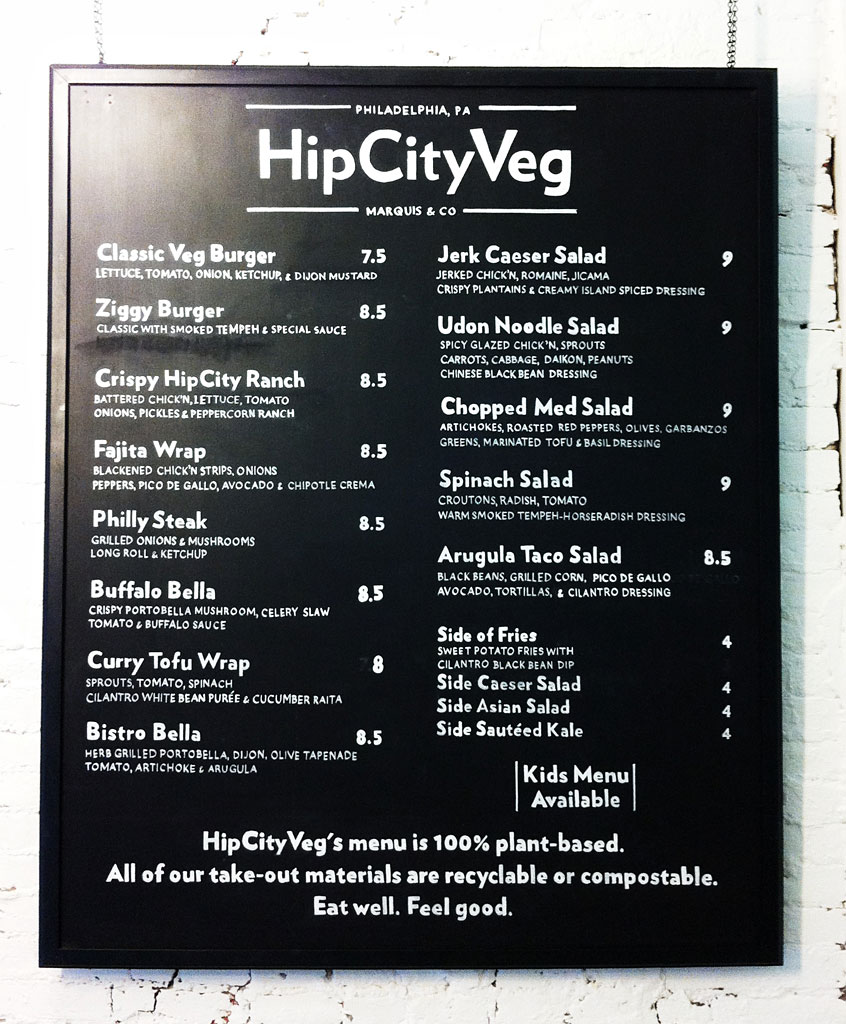 PHILADELPHIA, PA
HipCityVeg
MARQUIS & CO
Classic Veg Burger 7.5
LETTUCE, TOMATO, ONION, KETCHUP, & DIJON MUSTARD
Ziggy Burger 8.5
CLASSIC WITH SMOKED TEMPEH & SPECIAL SAUCE
Crispy HipCity Ranch 8.5
BATTERED CHICK'N, LETTUCE, TOMATO
ONIONS, PICKLES & PEPPERCORN RANCH
Fajita Wrap 8.5
BLACKENED CHICK'N STRIPS, ONIONS
PEPPERS, PICO DE GALLO, AVOCADO & CHIPOTLE CREMA
Philly Steak 8.5
GRILLED ONIONS & MUSHROOMS
LONG ROLL & KETCHUP
Buffalo Bella 8.5
CRISPY PORTOBELLA MUSHROOM, CELERY SLAW
TOMATO & BUFFALO SAUCE
Curry Tofu Wrap 8
SPROUTS, TOMATO, SPINACH
CILANTRO WHITE BEAN PURÉE & CUCUMBER RAITA
Bistro Bella 8.5
HERB GRILLED PORTOBELLA, DIJON, OLIVE TAPENADE
TOMATO, ARTICHOKE & ARUGULA
Jerk Caeser Salad 9
JERKED CHICK'N, ROMAINE, JICAMA
CRISPY PLANTAINS & CREAMY ISLAND SPICED DRESSING
Udon Noodle Salad 9
SPICY GLAZED CHICK'N, SPROUTS
CARROTS, CABBAGE, DAIKON, PEANUTS
CHINESE BLACK BEAN DRESSING
Chopped Med Salad 9
ARTICHOKES, ROASTED RED PEPPERS, OLIVES, GARBANZOS
GREENS, MARINATED TOFU & BASIL DRESSING
Spinach Salad 9
CROUTONS, RADISH, TOMATO
WARM SMOKED TEMPEH-HORSERADISH DRESSING
Arugula Taco Salad 8.5
BLACK BEANS, GRILLED CORN, PICO DE GALLO
AVOCADO, TORTILLAS, & CILANTRO DRESSING
Side of Fries 4
SWEET POTATO FRIES WITH
CILANTRO BLACK BEAN DIP
Side Caeser Salad 4
Side Asian Salad 4
Side Sautéed Kale 4
Kids Menu
Available
HipCityVeg's menu is 100% plant-based.
All of our take-out materials are recyclable or compostable.
Eat well. Feel good.